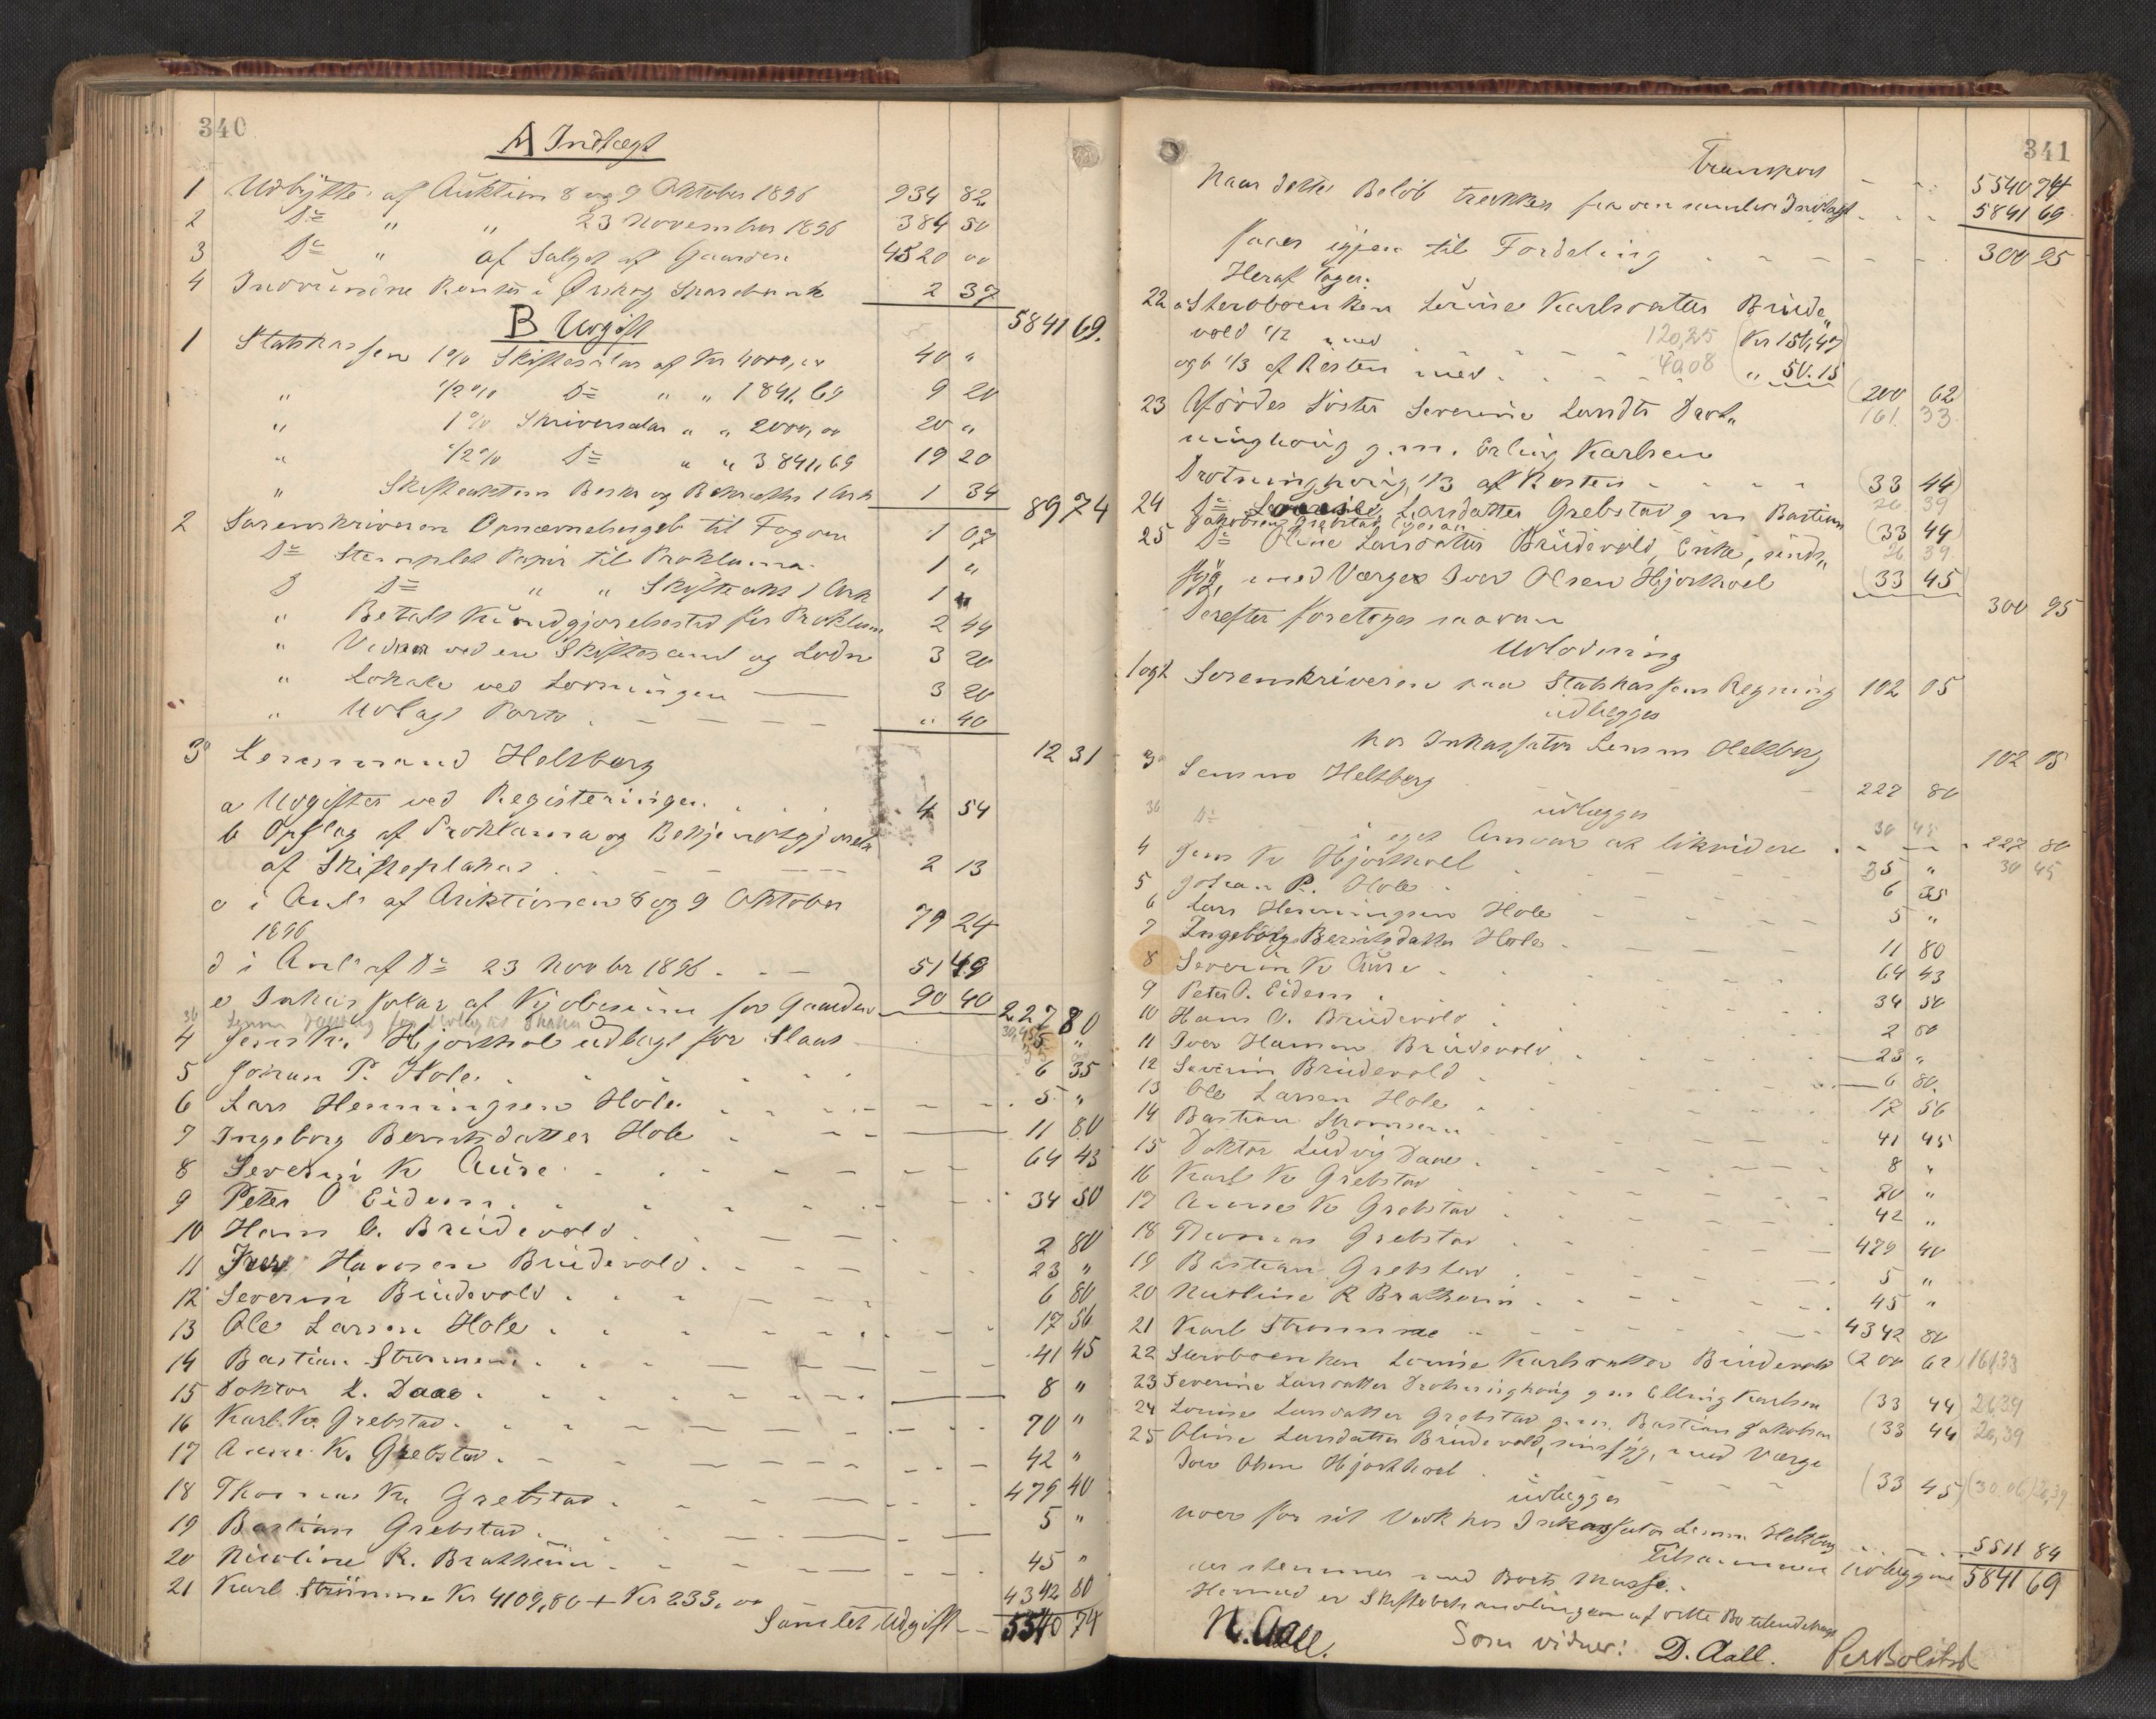 340
A Indtægt
1 Udbytte af Auktion 8 og 9 Oktober 1896 934 82
2 Do " " 23 November 1896 384 50
3 Do " af Salget af Gaarden 4520 00
4 Indvundne Renter i Ørskog Sparebank 2 37
5841 69.
B Udgift
1 Statskassen 1% Skiftesalær af Kr 4000,00 40 "
" 1/2% Do " " 1841,69 9 20
" 1% Skriversalær " " 2000,00 20 "
" 1/2% Do " " 3841,69 19 20
" Skifteakten Besk og Bekræftn 1 Ark 1 34
89 74
2 Sorenskriveren Opnævnelsesgeb til Fogden 1 07
Do Stemplet Papir til Proklama 1 "
D Do " " Skifteakt 1 Ark 1 "
" Betalt Kundgjørelsestid for Proklam 2 44
" Vidner ved en Skiftesaml og Lodn 3 20
" Lokale ved Lodningen 3 20
" Udlagt Porto " 40
12 31
3 Lensmand Helsberg
a Udgifter ved Registeringen 4 54
b Opslag af Proklama og Bekjendtgjørelse
af Skifteplakat 2 13
c i Anl af Auktionen 8 og 9 Oktober
1896 79 24
d i Anl af Do 23 Novbr 1896 51 49
e Inkassosalær af Kjøbesum for Gaarden 90 40
227 80
4 Jens Kn. Hjorthol udlagt for Slaas
5 Johan P. Hole 6 35
6 Lars Henningsen Hole 5 "
7 Ingeborg Berntsdatter Hole 11 80
8 Severin K Aure 64 43
9 Peter O Eidem 34 50
10 Hans O. Brudevold 2 80
11 Iver Hansen Brudevold 23 "
12 Severin Brudevold 6 80
13 Ole Larsen Hole 17 56
14 Bastian Strømmen 41 45
15 Doktor L. Daae 8 "
16 Karl K. Grebstad 70 "
17 Anne K. Grebstad 42 "
18 Thomas K. Grebstad 479 40
19 Bastian Grebstad 5 "
20 Nicoline R. Bratheim 45 "
21 Karl Strømme Kr 4109,80 + Kr 233,00 4342 80
Samlet Udgift 5540 74
341
Transport 5540 74
Naar dette Beløb trækkes fra den samlede Indtægt 5841 69
faaes igjen til Fordeling 300 95
Heraf tager:
22 a Sterboenken Louise Karlsdatter Brude„
vold 1/2 med 120,25 (Kr 150,47
og b 1/3 af Resten med 40,08 " 50.15
(200 62)
161. 33
23 Afdødes Søster Severine Larsdtr Drot„
ninghoug g.m. Erling Karlsen
Drotninghoug, 1/3 af Resten (33 44)
26 39
24 Do Louise Larsdatter Grebstad g m Bastian
Jakobsen Grebstad ligesaa (33 44)
26 39.
25 Do Oline Larsdatter Brudevold, Enke, sinds„
syg, med Værge Iver Olsen Hjorthol (33 45)
300 95
Derefter foretoges saadan
Udlodning
1 og 2 Sorenskriveren paa Statskassens Regning 102 05
udlægges
hos Inkassator Lensm Helsberg 102 05
3 Lensm Helsberg 227 80
udlægges
3b Do 30 45
i eget Ansvar at likvidere 227 80
30 45
4 Jens K Hjorthol 35 "
5 Johan P. Hole 6 35
6 Lars Henningsen Hole 5 "
7 Ingeborg Berntsdatter Hole 11 80
8 Severin K Aure 64 43
9 Peter O. Eidem 34 50
10 Hans O. Brudevold 2 80
11 Iver Hansen Brudevold 23 "
12 Severin Brudevold 6 80.
13 Ole Larsen Hole 17 56
14 Bastian Strømmen 41 45
15 Doktor Ludvig Daae 8 "
16 Karl K Grebstad 70 "
17 Anne K Grebstad 42 "
18 Thomas Grebstad 479 40
19 Bastian Grebstad 5 "
20 Nicoline R Bratheim 45 "
21 Karl Strømme 4342 80
22 Sterboenken Louise Karlsdatter Brudevold (200 62) 161,33
23 Severine Larsdatter Drotninghoug g m Elling Karlsen (33 44) 26,39
24 Louise Larsdatter Grebstad g.m. Bastian Jakobsen (33 44) 26,39
25 Oline Larsdatter Brudevold, sindssyg, med Værge
Iver Olsen Hjorthol (33 45) (30.06) 26,39
udlægges
hver for sit Vedk hos Inkassator Lensm Helsberg 5511 84
Tilsammen udlæggene 5841 69
der stemmer med Boets Masse.
Hermed er Skiftebehandlingen af dette Bo tilendebragt
N. Aall. Som vidner: D. Aall.